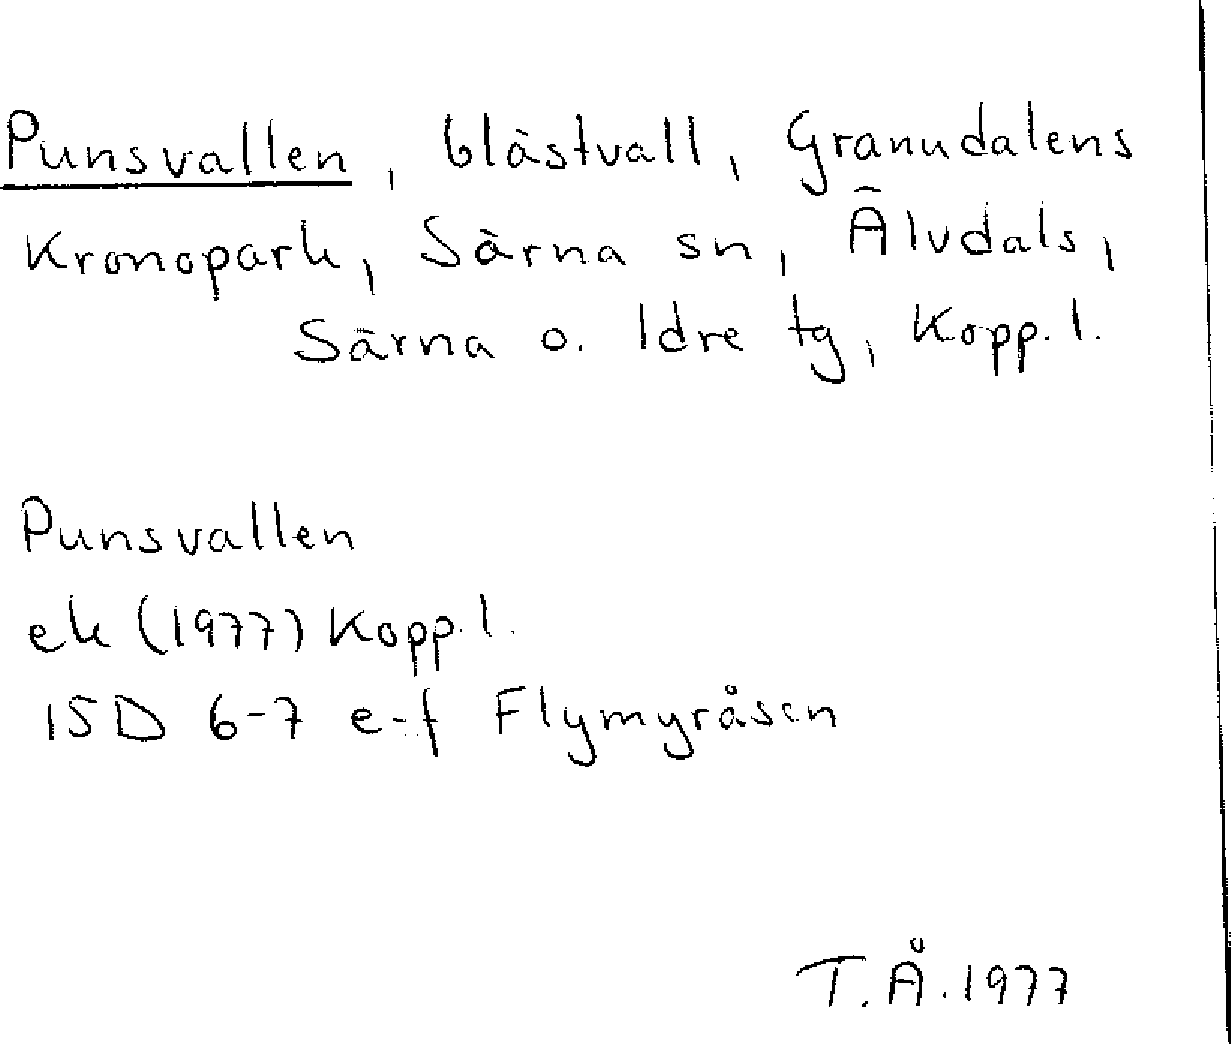 Punsvallen, blästvall, Granudalens
Kronopark, Särna sn, Älvdals,
Särna o. Idre tg, Kopp. l.
Punsvallen
ek (1977) Kopp. l.
15D 6-7 e-f Flymyråsen
T.Å. 1977